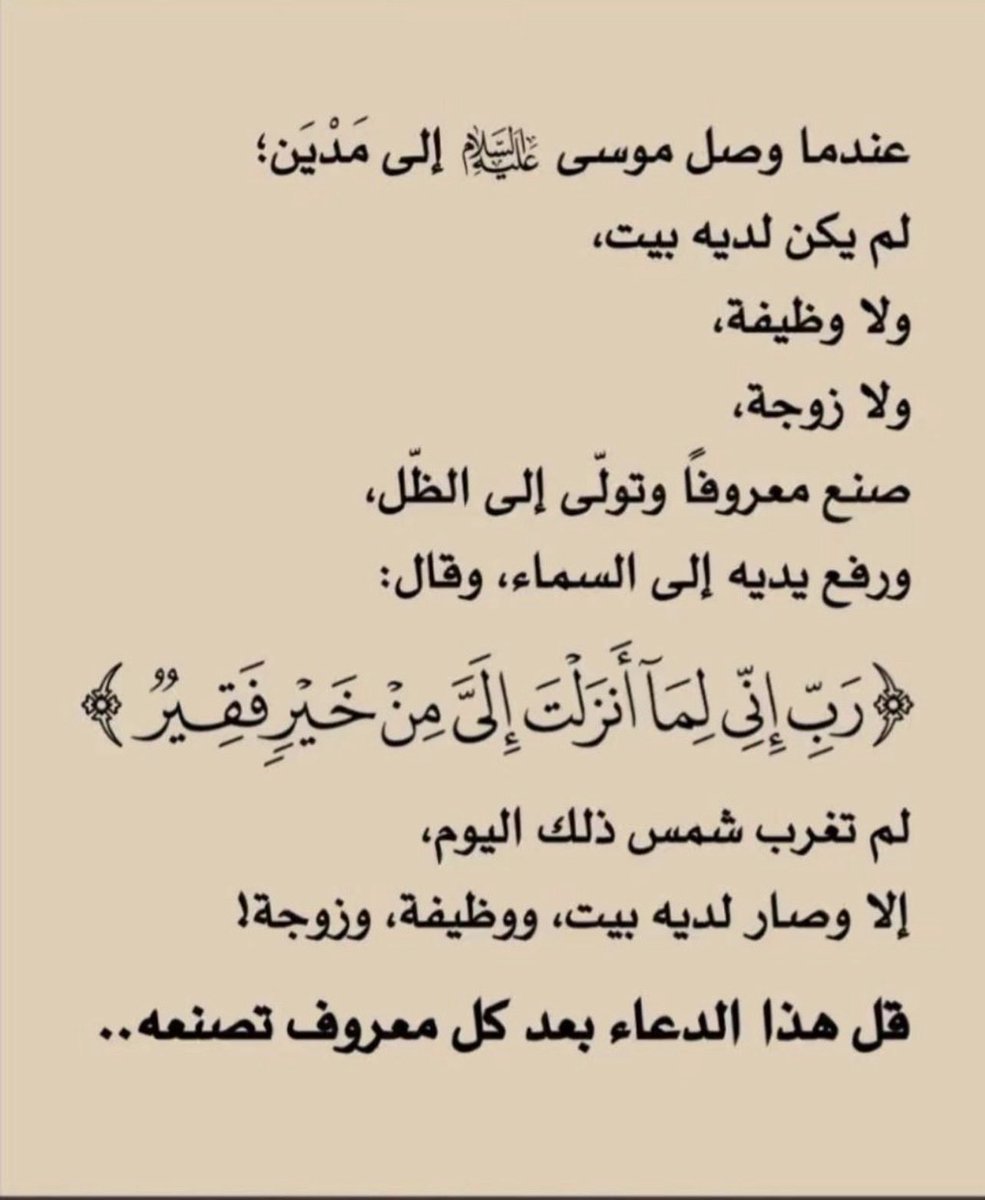 عندما وصل موسى عليه السلام إلى مَدْيَن؛
لم يكن لديه بيت،
ولا وظيفة،
ولا زوجة،
صنع معروفاً وتولّى إلى الظّل،
ورفع يديه إلى السماء، وقال:
﴿رَبِّ إِنِّي لِمَآ أَنزَلْتَ إِلَيَّ مِنْ خَيْرٍ فَقِيرٌ﴾
لم تغرب شمس ذلك اليوم،
إلا وصار لديه بيت، ووظيفة، وزوجة!
قل هذا الدعاء بعد كل معروف تصنعه..